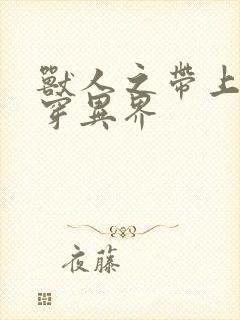 獸人之帶上
穿異界
夜藤